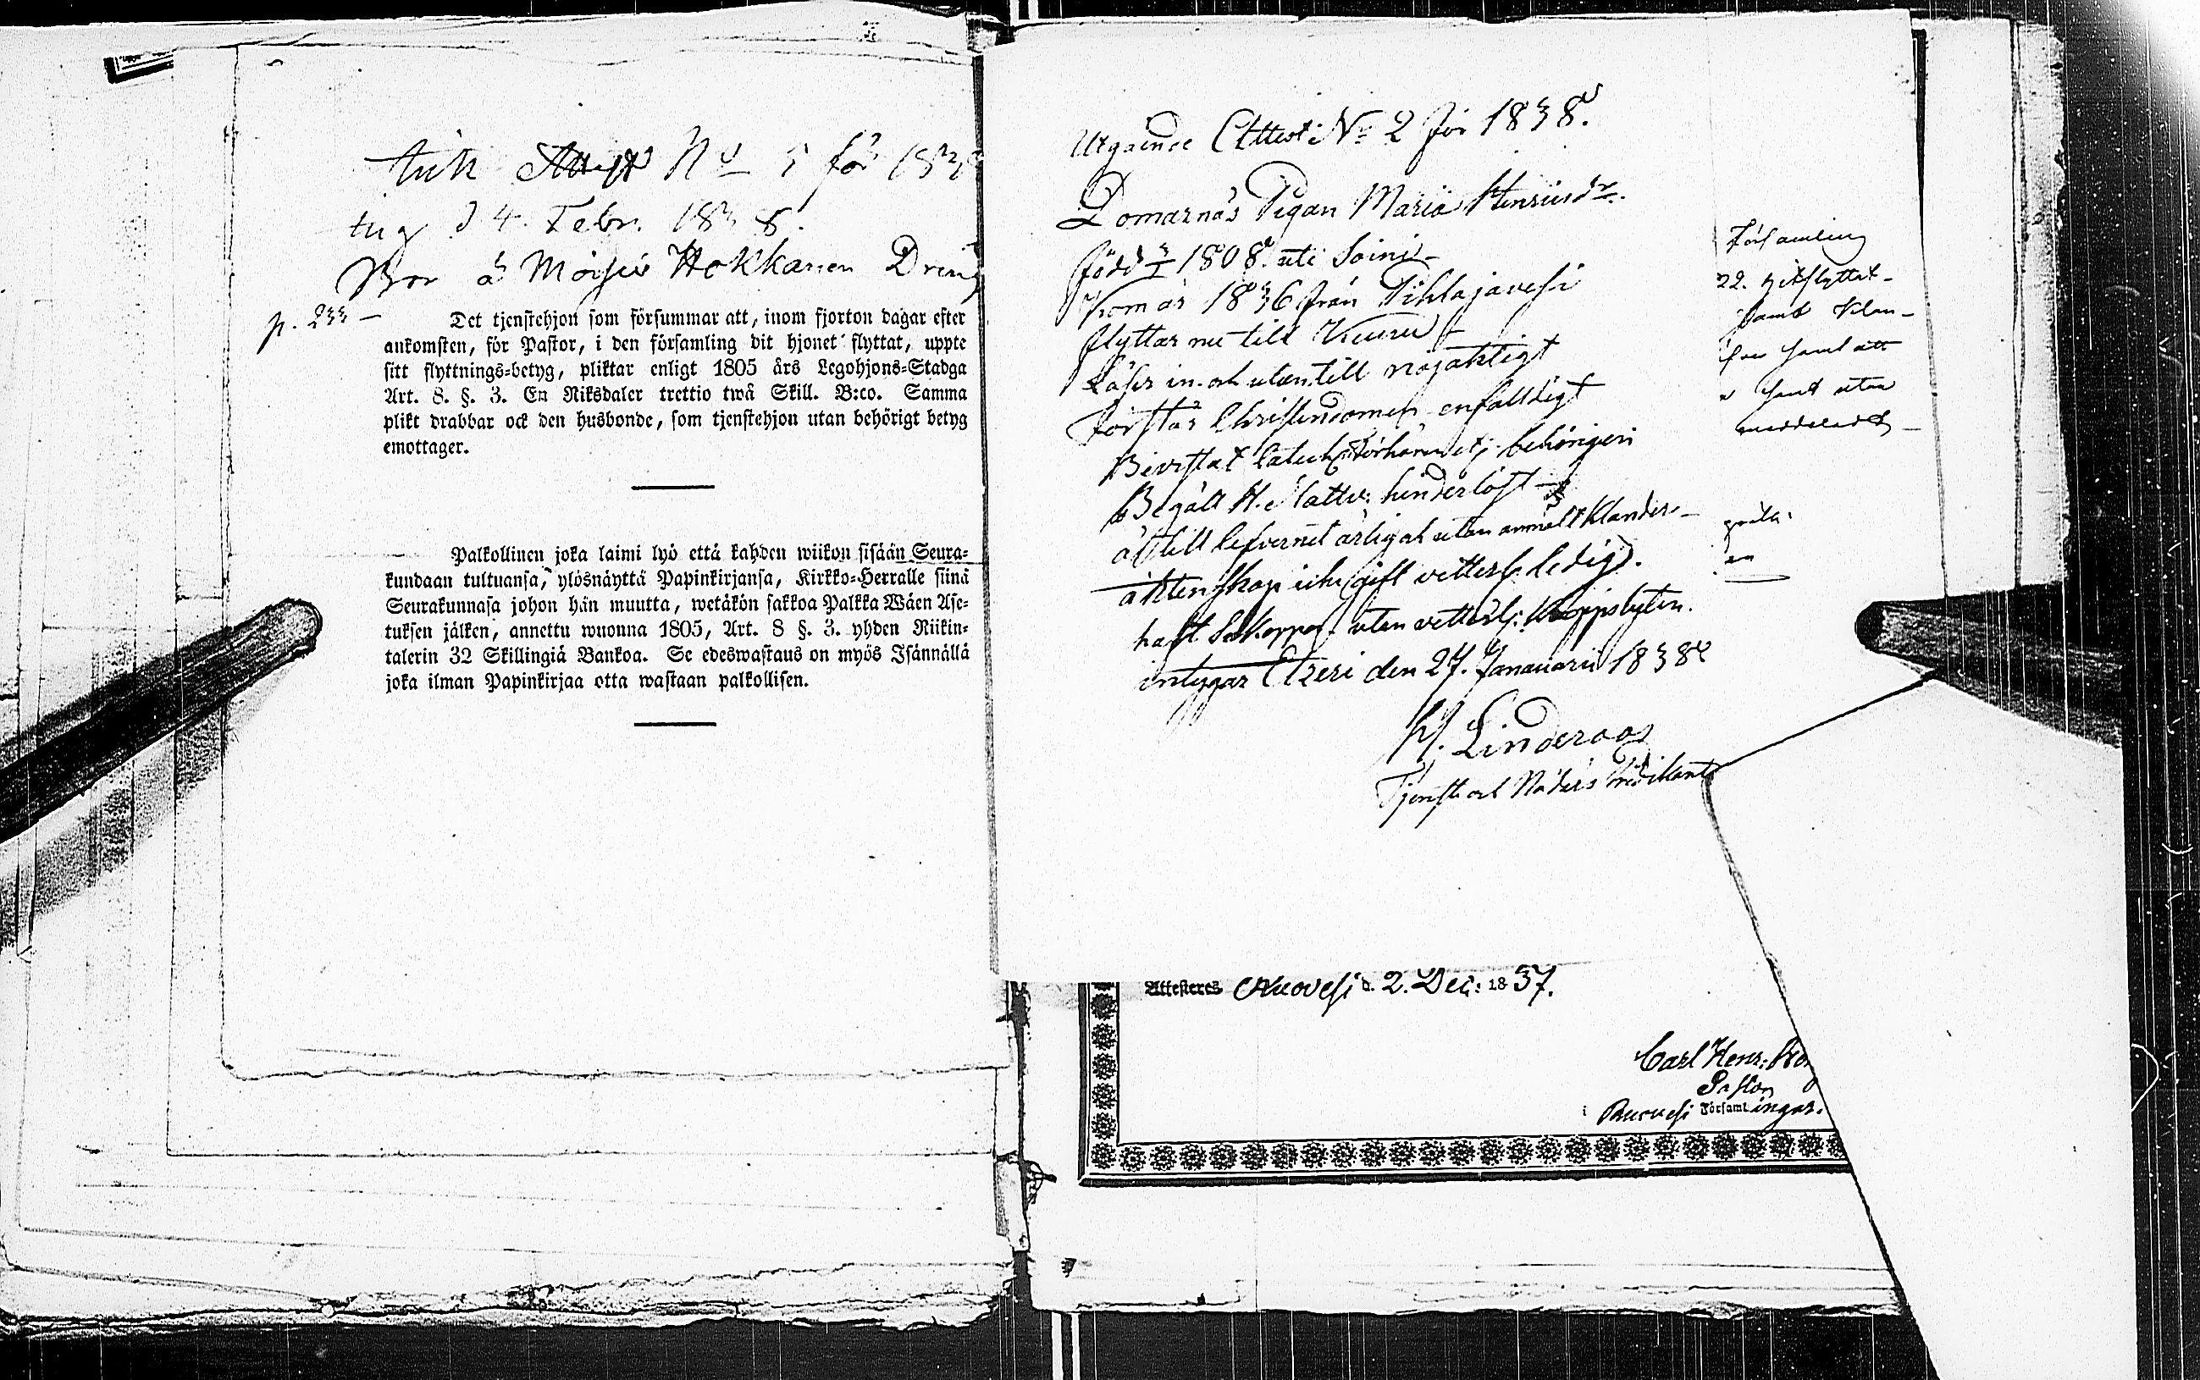 Attest No 5 för 183
d 4. Febr. 1838.
Bor å Hokkanen Dreng
p. 233 —
Det tjenstehjon som försummar att, inom fjorton dagar efter
ankomsten, för Pastor, i den församling dit hjonet flyttat, uppte
sitt flyttnings-betyg, pliktar enligt 1805 års Legohjons-Stadga
Art. 8. §. 3. En Riksdaler trettio twå Skill. B:co. Samma
plikt drabbar ock den husbonde, som tjenstehjon utan behörigt betyg
emottager.
Palkollinen joka laimi lyö että kahden wiikon sisään Seura-
kundaan tultuansa, ylösnäyttä Papinkirjansa, Kirkko-Herralle siinä
Seurakunnasa johon hän muutta, wetäkön sakkoa Palkka Wäen Ase-
tuksen jälken, annettu wuonna 1805, Art. 8 §. 3. yhden Riikin-
talerin 32 Skillingiä Bankoa. Se edeswastaus on myös Isännällä
joka ilman Papinkirjaa otta wastaan palkollisen.
Utgående Attest No 2 för 1838.
Domarnäs Pigan Maria Henricsdr.
född 1808. uti Soini
kom år 1836 från Pihlajavesi
flyttar nu till Kuru
Läser in- och utantill nöjaktigt
förstår Christendomen enfalldigt
Bevistat behörigen
Begått H. Nattv: hinderlöst
är till lefvernet ärlig och utan anmält klander
äktenskap icke gift vetterl. ledig.
haft Sskoppor utan vetterl:
intygar Etzeri den 27. Januarii 1838
H. Linderoos
Tjenst och Nåd:års Predikant
Församling
22. hitflyttat
samt
samt att
samt utan
meddeladt
Attesteras Ruovesi d. 2. Dec: 1837.
Carl Henr:
Pastor
i Ruovesi Församlingar.